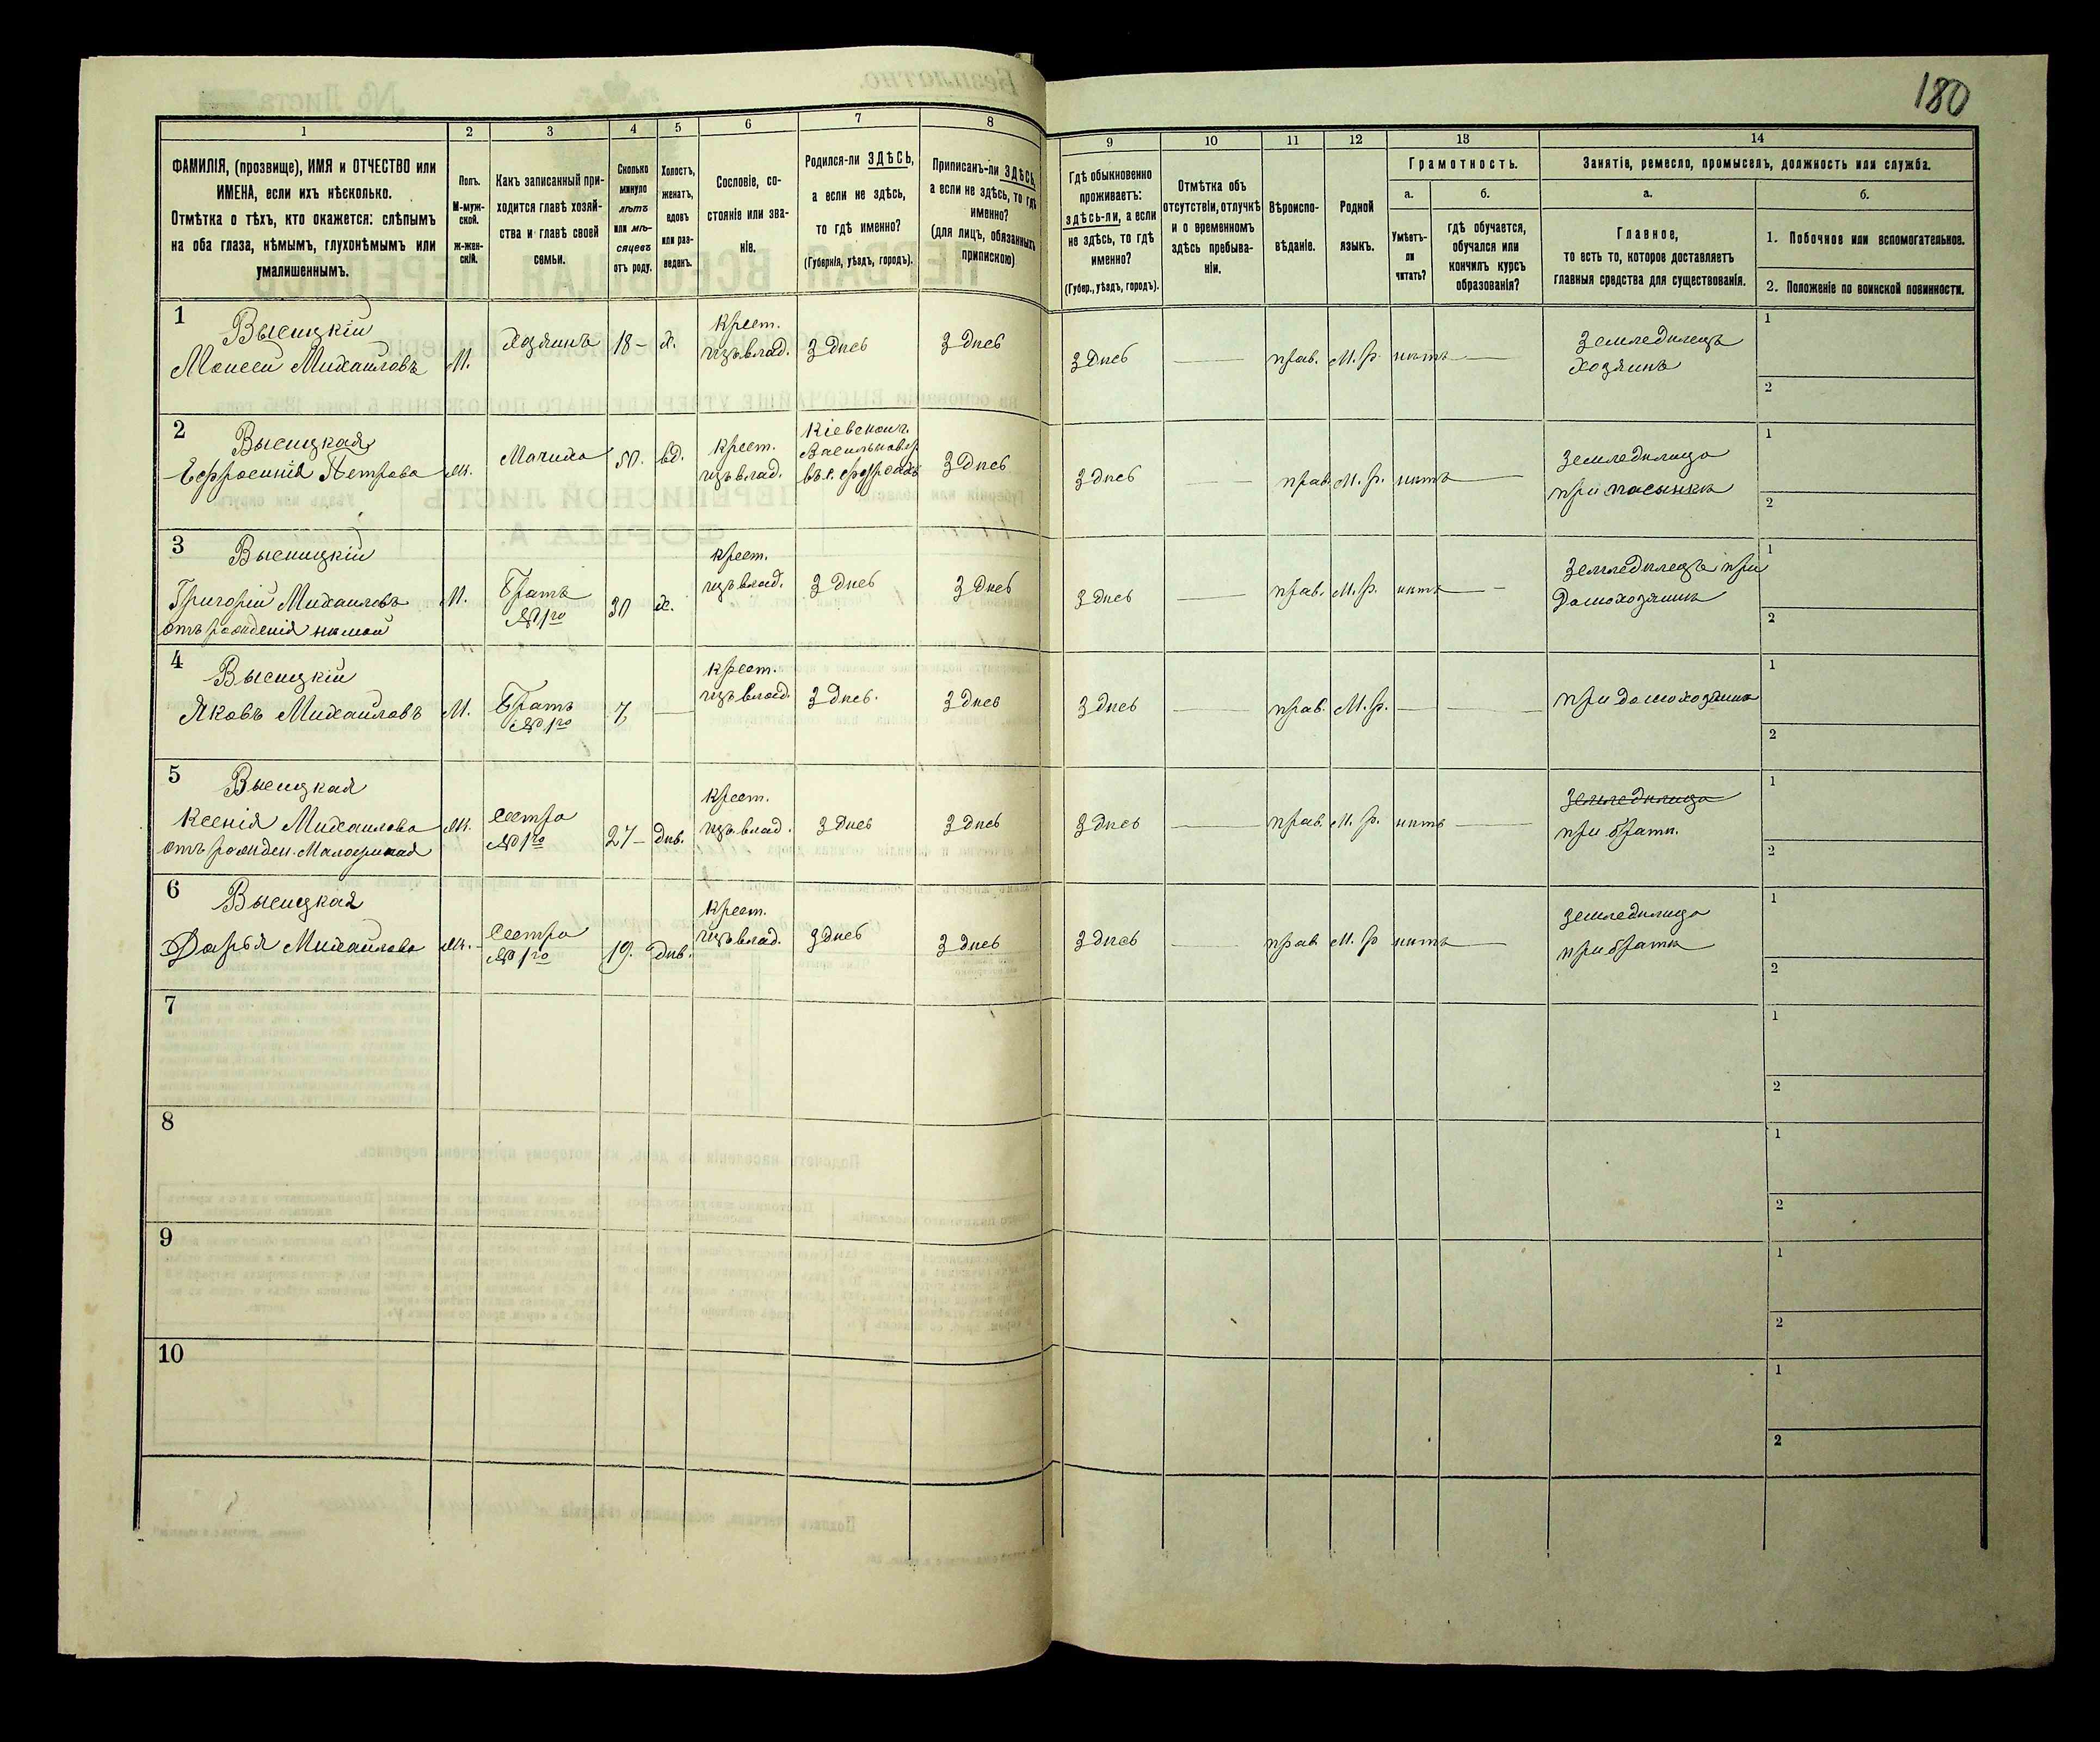 180
1
2
3
4
5
6
7
8
9
10
11
12
13
14
ФАМИЛІЯ, (прозвище), ИМЯ и ОТЧЕСТВО или
ИМЕНА, если ихъ нѣсколько.
Отмѣтка о тѣхъ, кто окажется: слѣпымъ
на оба глаза, нѣмымъ, глухонѣмымъ или
умалишеннымъ.
Полъ.
М-муж-
ской.
ж-жен-
скій.
Какъ записанный при-
ходится главѣ хозяй-
ства и главѣ своей
семьи.
Сколько
минуло
лѣтъ
или мѣ-
сяцевъ
отъ роду.
Холостъ,
женатъ,
вдовъ
или раз-
веденъ.
Сословіе, со-
стояніе или зва-
ніе.
Родился-ли ЗДѢСЬ,
а если не здѣсь,
то гдѣ именно?
(Губернія, уѣздъ, городъ).
Приписанъ-ли ЗДѢСЬ,
а если не здѣсь, то гдѣ
именно?
(для лицъ, обязанныхъ
припискою)
Гдѣ обыкновенно
проживаетъ:
здѣсь-ли, а если
не здѣсь, то гдѣ
именно?
(Губер., уѣздъ, городъ).
Отмѣтка объ
отсутствіи, отлучкѣ
и о временномъ
здѣсь пребыва-
ніи.
Вѣроиспо-
вѣданіе.
Родной
языкъ.
Грамотность.
а.
Умѣетъ-
ли
читать?
б.
гдѣ обучается,
обучался или
кончилъ курсъ
образованія?
Занятіе, ремесло, промыселъ, должность или служба.
а.
Главное,
то есть то, которое доставляетъ
главныя средства для существованія.
б.
1. Побочное или вспомогательное.
2. Положеніе по воинской повинности.
1
Высицкій
Моисей Михаиловъ
М.
хозяинъ
18 —
х.
крест.
изъ влад.
Здѣсь
Здѣсь
Здѣсь
—
прав.
М. р.
нѣтъ
—
Земледѣлецъ
хозяинъ
1
2
2
Высицкая
Ефросинія Петрова
Ж.
Мачиха
50.
вд.
крест.
изъ влад.
Кіевской г.
Васильков. у.
Здѣсь
Здѣсь
—
прав.
М. р.
нѣтъ
—
Земледѣлица
при пасынкѣ
1
2
3
Высицкій
Григорій Михаиловъ
отъ рожденія нѣмой
М.
Братъ
№ 1го
30
х.
крест.
изъ влад.
Здѣсь
Здѣсь
Здѣсь
—
прав.
М. р.
нѣтъ
—
Земледѣлецъ при
Домохозяинѣ
1
2
4
Высицкій
Яковъ Михаиловъ
М.
Братъ
№ 1го
7
—
крест.
изъ влад.
Здѣсь.
Здѣсь
Здѣсь
—
прав.
М. р.
—
—
при домохозяинѣ
1
2
5
Высицкая
Ксенія Михаилова
отъ рожден. Малоумная
Ж.
сестра
№ 1го
27 —
дѣв.
крест.
изъ влад.
Здѣсь
Здѣсь
Здѣсь
—
прав.
М. р.
нѣтъ
—
Земледѣлица
при братѣ.
1
2
6
Высицкая
Дарья Михаилова
Ж.
сестра
№ 1го
19.
дѣв.
крест.
изъ влад.
Здѣсь
Здѣсь
Здѣсь
—
прав
М. р
нѣтъ
—
Земледѣлица
при братѣ
1
2
7
1
2
8
1
2
9
1
2
10
1
2